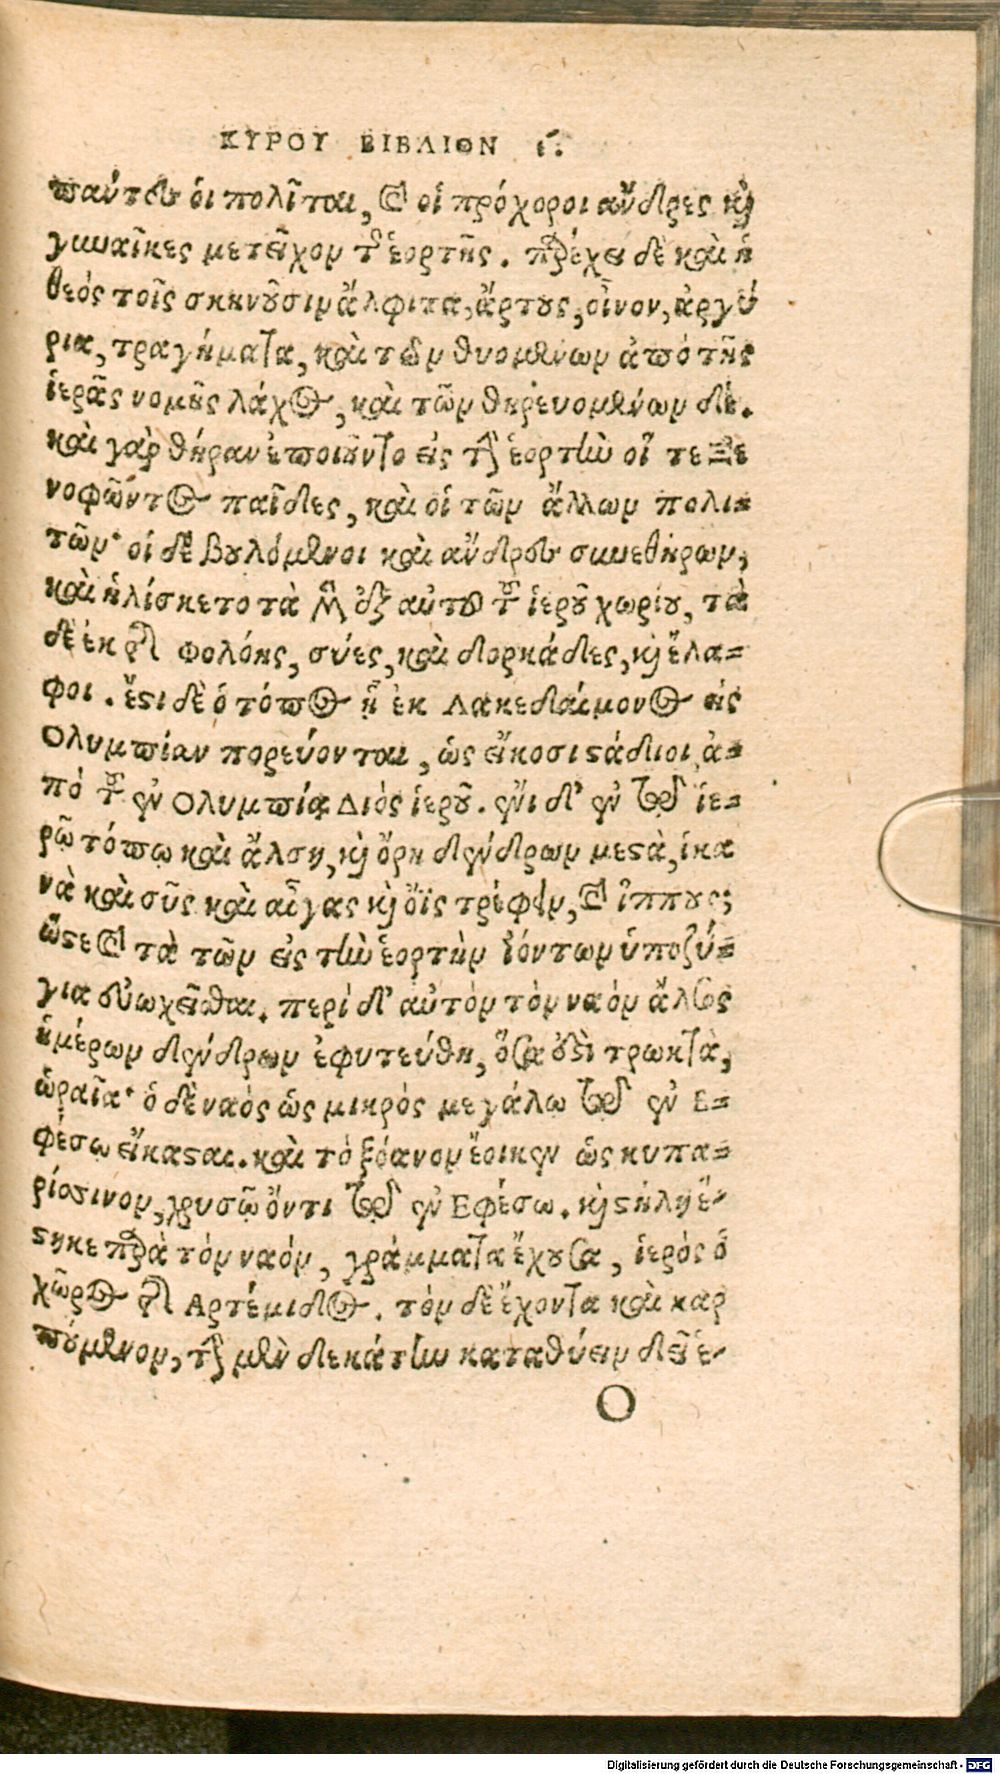 ΚΥΡΟΥ ΒΙΒΛΙΟΝ ί.
πάντες ὁι πολῖται, καὶ οἱ πρόχοροι ἄνδρες κὶ
γυναῖκες μετεῖχον τῆς ἑορτῆς. παρέχει δὲ καὶ ἡ
θεός τοῖς σκηνοῦσιν ἄλφιτα, ἄρτους, οἶνον, ἀργύ
ρια, τραγήματα, καὶ τῶν θυομένων ἀπό τῆς
ἱερᾶς νομῆς λάχος, καὶ τῶν θηρευομένων δέ.
καὶ γὰρ θήραν ἐποιοῦντο εἰς τὴν ἑορτὴν οἵ τε Ξε
νοφῶντος παῖδες, καὶ οἱ τῶν ἄλλων πολι=
τῶν· οἱ δὲ βουλόμενοι καὶ ἄνδρες συνεθήρων,
καὶ ἡλίσκετο τὰ μὲν ἐξ αὐτοῦ τοῦ ἱεροῦ χωρίου, τὰ
δὲ ἐκ τῆς Φολόης, σύες, καὶ δορκάδες, κὶ ἔλα=
φοι. ἔστι δὲ ὁ τόπος ᾗ ἐκ Λακεδαίμονος εἰς
Ολυμπίαν πορεύονται, ὡς εἴκοσι στάδιοι ἀ=
πό τοῦ ἐν Ολυμπίᾳ Διός ἱεροῦ. ἔνι δ' ἐν τῷ ἱε=
ρῷ τόπῳ καὶ ἄλση, κὶ ὄρη δένδρων μεστὰ, ἱκα
νὰ καὶ σῦς καὶ αἶγας κὶ ὄϊς τρέφειν, καὶ ἵππους;
ὥστε καὶ τὰ τῶν εἰς τὴν ἑορτὴν ἰόντων ὑποζύ=
για εὐωχεῖσθαι. περί δ' αὐτόν τὸν ναόν ἄλσος
ἡμέρων δένδρων ἐφυτεύθη, ὅσα ἐστὶ τρωκτὰ,
ὡραῖα· ὁ δὲ ναός ὡς μικρός μεγάλω τῷ ἐν Ε=
φέσῳ εἴκασται. καὶ τό ξόανον ἔοικεν ὡς κυπα=
ρίσσινον, χρυσῷ ὄντι τῷ ἐν Εφέσω. κὶ στήλη ἕ-
στηκε παρὰ τόν ναόν, γράμματα ἔχουσα, ἱερός ὁ
χῶρος τῆς Αρτέμιδος. τόν δὲ ἔχοντα καὶ καρ
πούμενον, τὴν μὲν δεκάτην καταθύειν δεῖ ἑ-
Ο
Digitalisierung gefördert durch die Deutsche Forschungsgemeinschaft - DFG